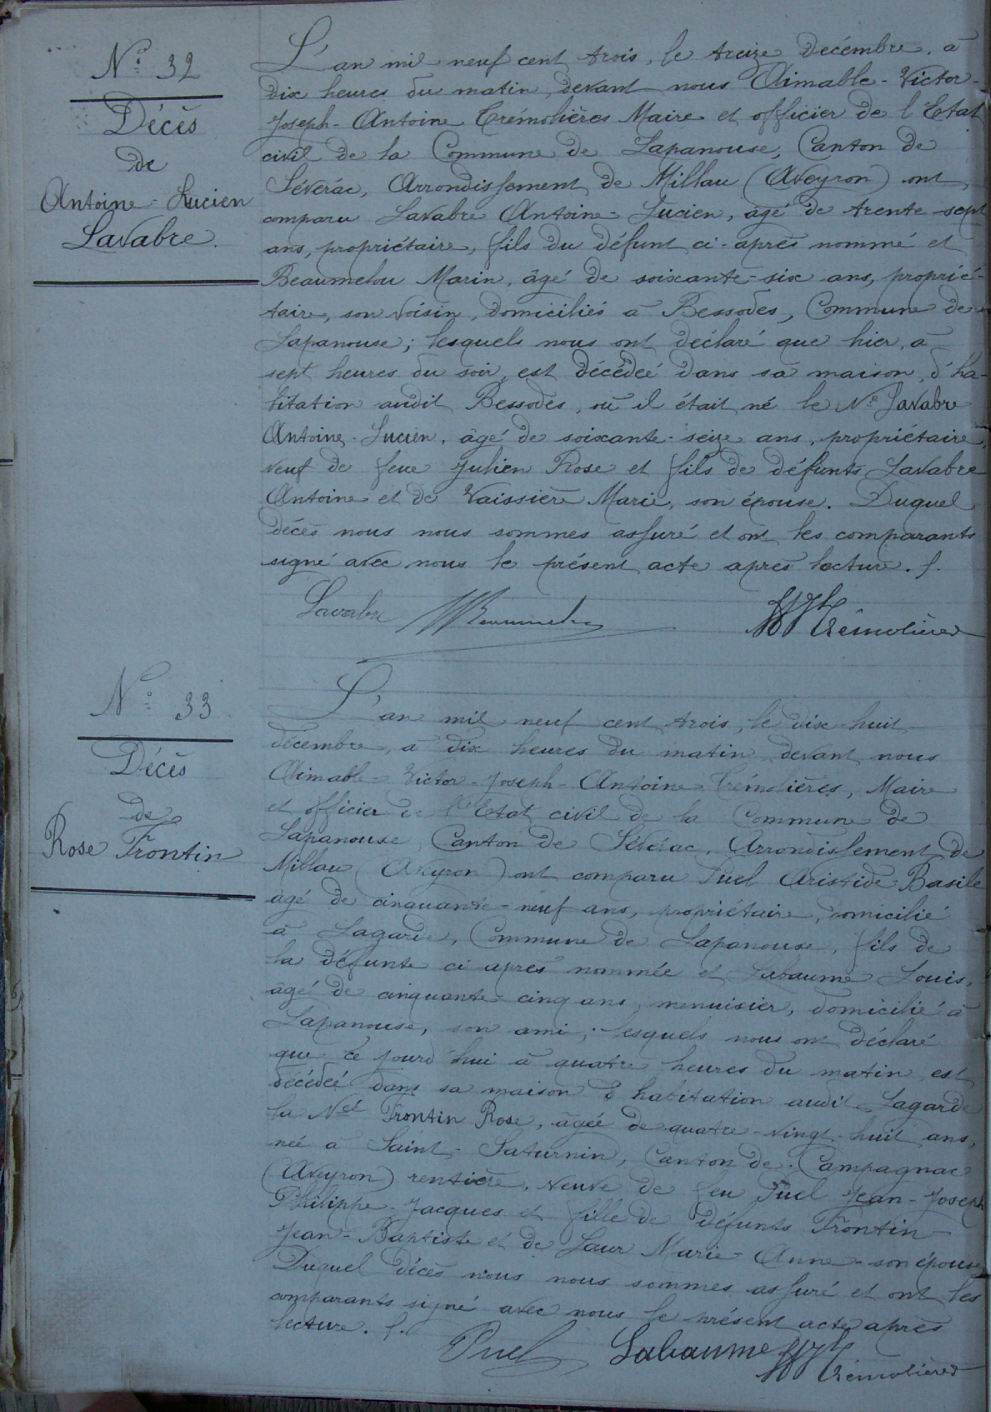 N.° 32
Décès
de
Antoine-Lucien
Lavabre.
L'an mil neuf cent trois, le treize décembre, à
dix heures du matin, devant nous Aimable-Victor-
Joseph-Antoine Trémolières Maire et officier de l'Etat
civil de la Commune de Lapanouse, Canton de
Séverac, Arrondissement de Millau (Aveyron) ont
comparu Lavabre Antoine-Lucien, âgé de trente-sept
ans, propriétaire, fils du défunt ci-après nommé et
Beaumelou Marin, âgé de soixante-six ans, proprié-
taire, son voisin, domiciliés à Bessodes, Commune de
Lapanouse; lesquels nous ont déclaré que hier, à
sept heures du soir, est décédeé dans sa maison d'ha-
bitation audit Bessodes, où il était né le Né Lavabre
Antoine-Lucien, âgé de soixante-seize ans, propriétaire,
veuf de feue Julien Rose et fils de défunts Lavabre
Antoine et de Vaissière Marie, son épouse. Duquel
décès nous nous sommes assuré et ont les comparants
signé avec nous le présent acte après lecture. f.
Lavabre Beaumelou Trémolières
N.° 33
Décès
de
Rose Frontin
L'an mil neuf cent trois, le dix-huit
décembre, à dix heures du matin, devant nous
Aimable-Victor-Joseph-Antoine Trémolières, Maire
et officier de l'Etat civil de la Commune de
Lapanouse, Canton de Séverac, Arrondissement de
Millau (Aveyron) ont comparu Puel Aristide-Basile
âgé de cinquante-neuf ans, propriétaire, domicilié
à Lagarde, Commune de Lapanouse, fils de
la défunte ci après nommée et Labaume Louis,
âgé de cinquante-cinq ans, menuisier, domicilié à
Lapanouse, son ami; lesquels nous ont déclaré
que ce jourd'hui à quatre heures du matin est
décédeé dans sa maison d'habitation audit Lagarde
la Née Frontin Rose, âgée de quatre-vingt-huit ans,
née à Saint-Saturnin, Canton de Campagnac
(Aveyron) rentière, veuve de feu Puel Jean-Joseph
Philippe-Jacques et fille de défunts Frontin
Jean-Baptiste et de Laur Marie-Anne son épouse
Duquel décès nous nous sommes assuré et ont les
comparants signé avec nous le présent acte après
lecture. f.
Puel Labaume Trémolières